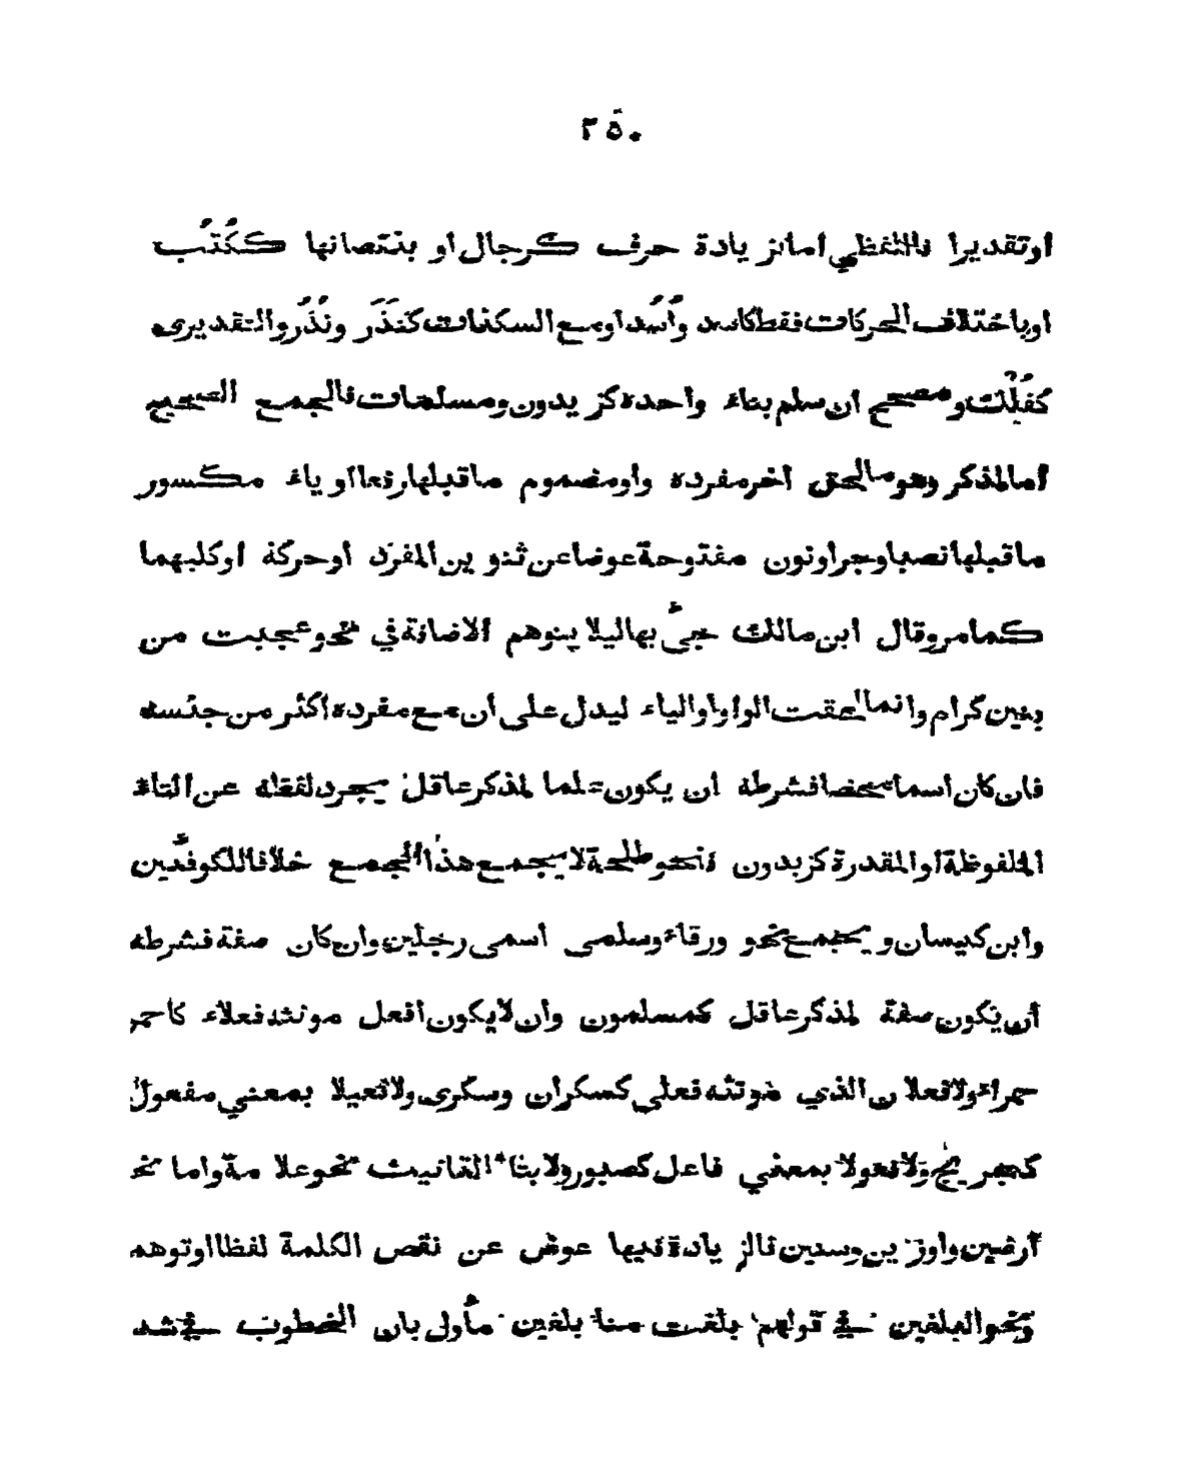 ٢٥٠
اوتقديرا فاللفظي اما بزيادة حرف كرجال او بنقصانها ككُتُب
او باختلاف الحركات فقط كاسد وأُسُد او مع السكنات كنَمَر ونُمُر والتقديرى
كفُلْك ومصحح ان سلم بناء واحده كزيدون ومسلمات فالجمع الصحيح
أما لمذكر وهو ما لحق آخر مفرده واو مضموم ما قبلها رفعا او ياء مكسور
ما قبلها نصبا وجرا ونون مفتوحة عوضا عن تنوين المفرد أو حركة او كليهما
كما مر وقال ابن مالك جىءَ بها ليلا يتوهم الاضافة في نحو عجبت من
بنين كرام وانما لحقت الواو أو الياء ليدل على أن مع مفرده اكثر من جنسه
فان كان اسما محضا فشرطه ان يكون علما لمذكر عاقل يجرد لفظه عن التاء
الملفوظة او المقدرة كزيدون فنحو طلحة لا يجمع هذا الجمع خلافا للكوفيّين
وابن كيسان ويجمع نحو ورقاء وسلمى اسمى رجلين وان كان صفة فشرطه
أن يكون صفة لمذكر عاقل كمسلمون وأن لا يكون أفعل مونثه فعلاء كاحمر
حمراء ولا فعلان الذي مؤنثه فعلى كسكران وسكرى ولا فعيلا بمعني مفعول
كجريح ولا فعولا بمعني فاعل كصبور ولا بتاء التانيث نحو علامة واما نحو
أرضين واوزين وسنين فالزيادة فيها عوض عن نقص الكلمة لفظا او توهم
ونحو البلغين في قولهم بلغت منا بلغين مأولى بان الخطوب في شد